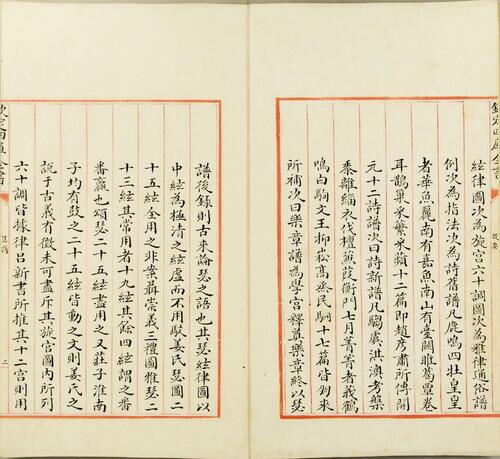 欽定四庫全書
絃律圖次為旋宮六十調圖次為雅律通俗譜
例次為指法次為詩舊譜凡鹿鳴四牡皇皇
者華魚麗南有嘉魚南山有臺關雎葛覃卷
耳鵲巢采蘩采蘋十二篇即趙彦肅所傳開
元十二詩譜次曰詩新譜凡騶虞淇澳考槃
黍離緇衣伐檀蒹葭衡門七月菁菁者莪鶴
鳴白駒文王抑崧髙烝民駉十七篇皆朋來
所補次曰樂章譜為學宮釋奠樂章終以瑟
譜後錄則古來論瑟之語也其瑟絃律圖以
中絃為極清之絃虚而不用駁姜氏瑟圖二
十五絃全用之非案聶崇義三禮圖雅瑟二
十三絃其常用者十九絃其餘四絃謂之番
番贏也頌瑟二十五絃盡用之又莊子淮南
子均有鼓之二十五絃皆動之文則姜氏之
說于古義有徵未可盡斥其旋宮圖內所列
六十調皆據律吕新書所推其十二宮則用
欽定四庫全書
瑟譜
二